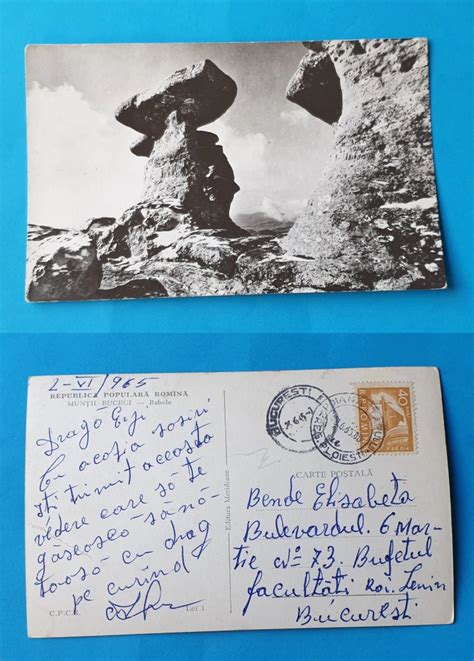 2-VI/965
REPUBLICA POPULARĂ ROMÎNĂ
MUNȚII BUCEGI — Babele
Dragă Gigi
Cu ocazia sosirii
îți trimit această
vedere care să te
găsească sănă-
toasă cu drag
pe curînd
C.P.C.S.
Lei 1
Editura Meridiane
BUCUREȘTI
PLOIEȘTI
40
POSTA ROMINA
CARTE POSTALĂ
Bende Elisabeta
Bulevardul. 6 Mar-
tie No 73. Bufetul
facultăți Roi. Lenin
București